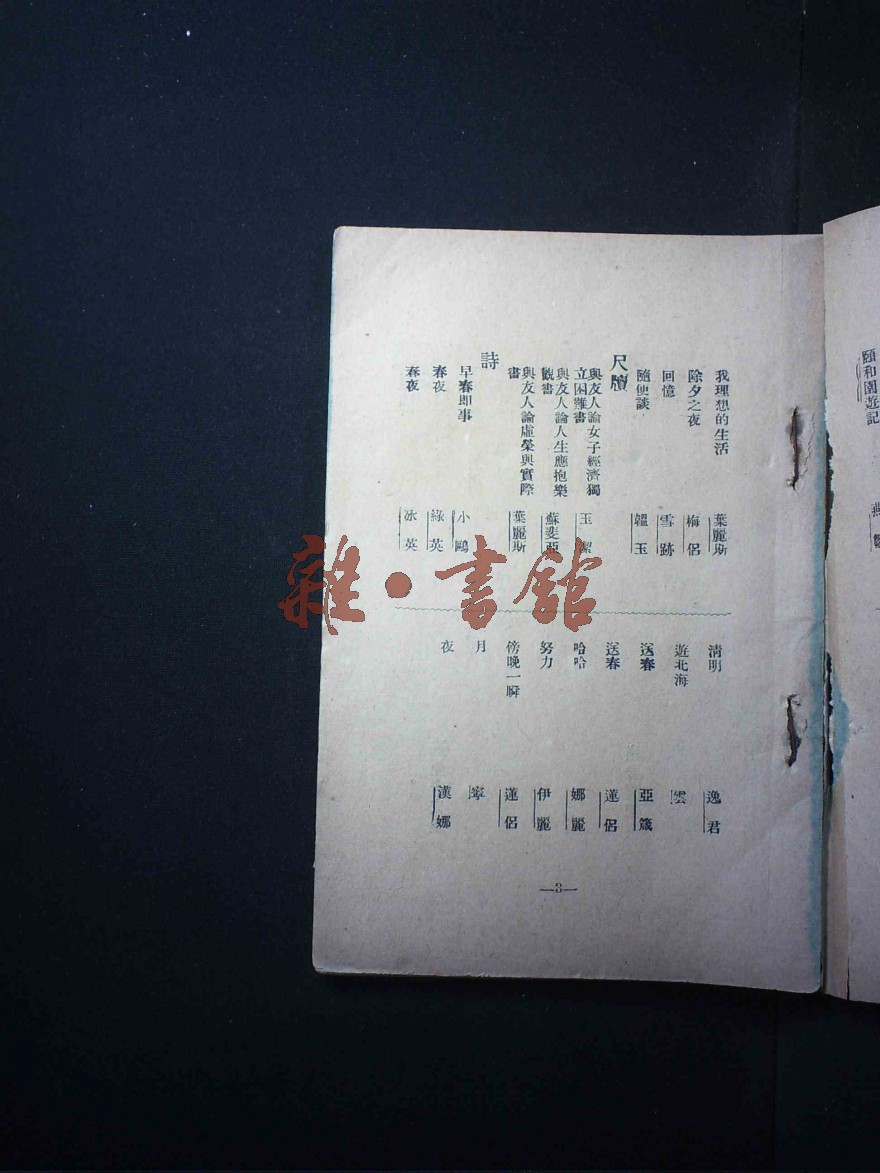 頤和園遊記 燕
我理想的生活 葉麗斯
除夕之夜 梅侶
回憶 雪跡
隨便談 韞玉
尺牘
與友人論女子經濟獨
立困難書 玉潔
與友人論人生應抱樂
觀書 蘇斐亞
與友人論虛榮與實際
書 葉麗斯
詩
早春即事 小鷗
春夜 綠英
春夜 冰英
清明 逸君
遊北海 雲
送春 亞箴
送春 蓮侶
哈哈 娜麗
努力 伊麗
傍晚一瞬 蓮侶
月 寧
夜 漢娜
—3—
雜·書館